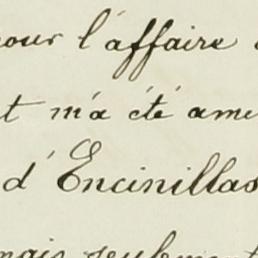 pour l'affaire
t m'a été ame
d'Encinillas
mais seulement